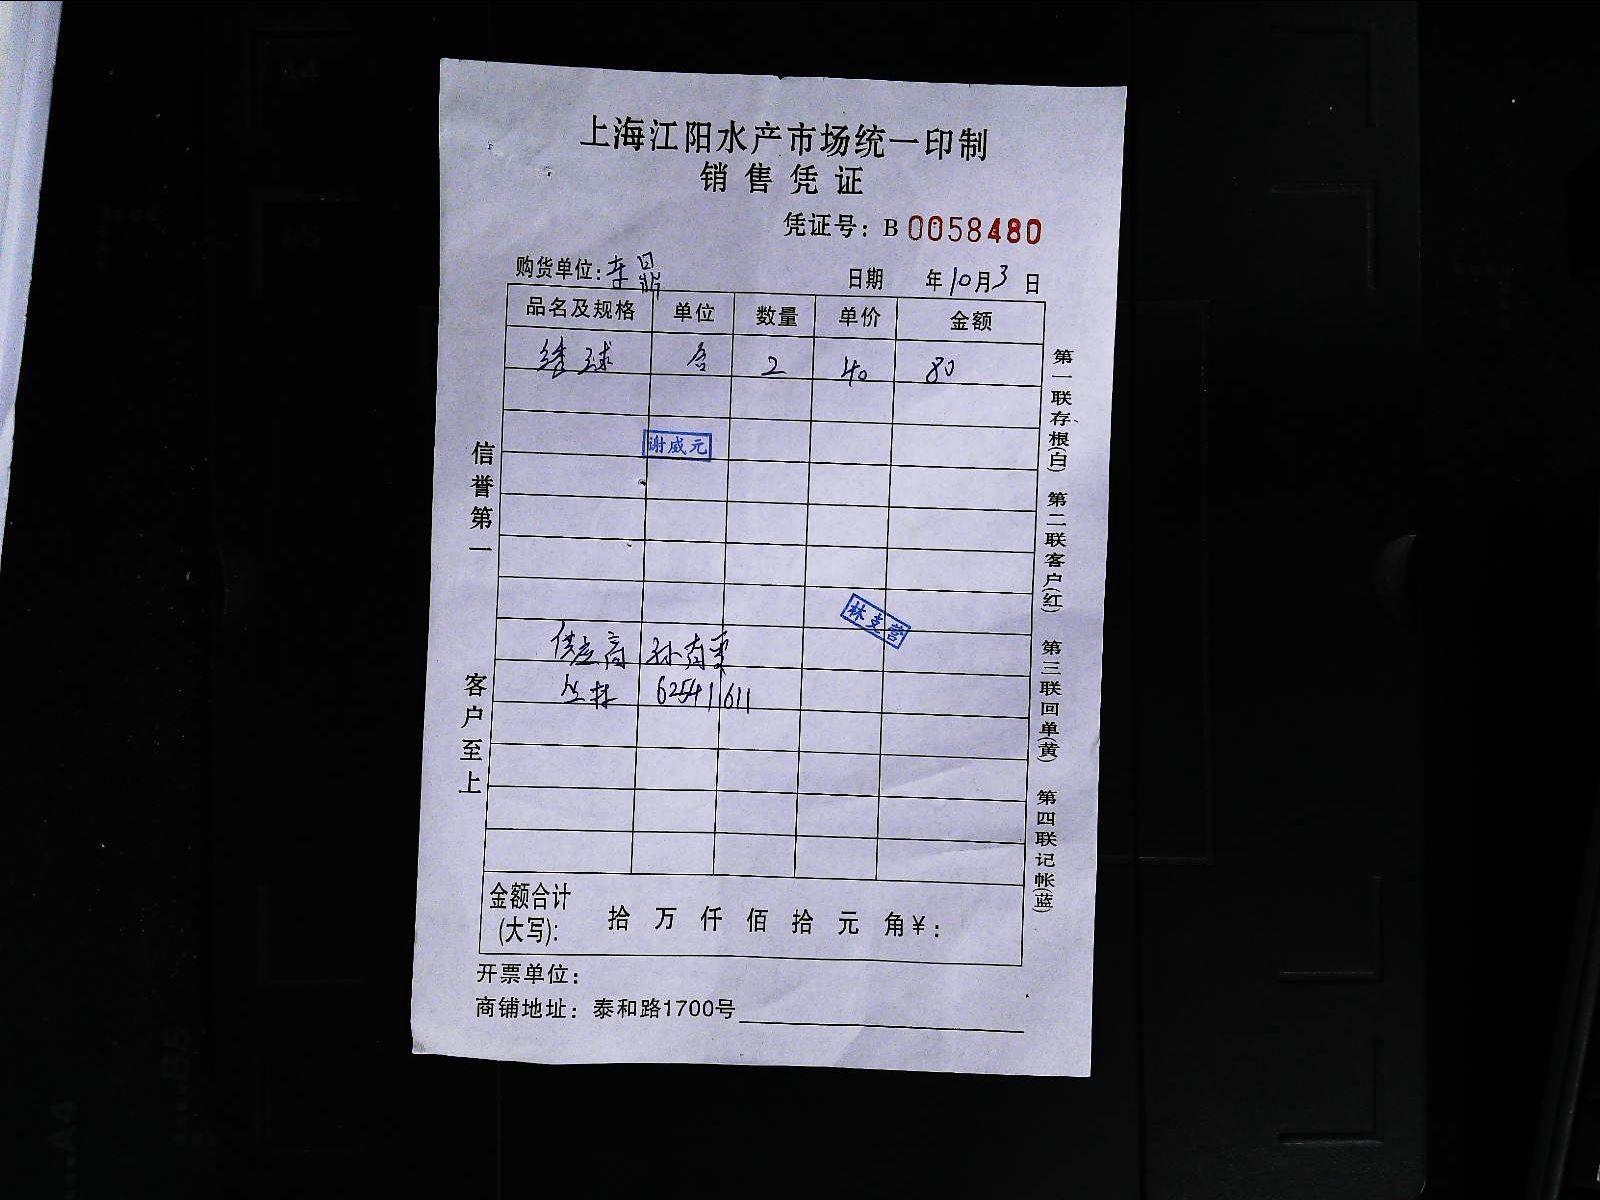 上海江阳水产市场统一印制
销售凭证
凭证号：B 0058480
购货单位：东晶
日期 年10月3日
品名及规格 单位 数量 单价 金额
绣球 合 2 40 80
谢威元
林支营
供应商 孙有雯
丛林 62541611
金额合计
(大写)： 拾 万 仟 佰 拾 元 角￥：
开票单位：
商铺地址：泰和路1700号
信誉第一
客户至上
第一联存根(白) 第二联客户(红) 第三联回单(黄) 第四联记帐(蓝)